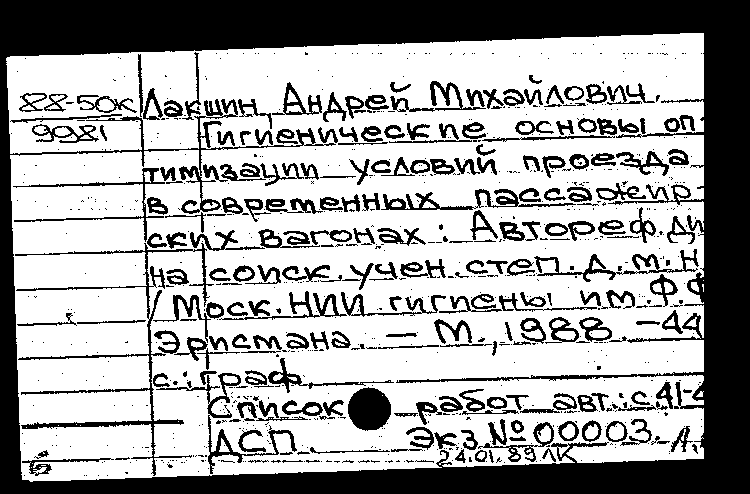 88-50к Лакшин, Андрей Михайлович.
9981 Гигиенические основы оп-
тимизации условий проезда
в современных пассажир-
ских вагонах: Автореф. ди
на соиск. учен. степ. д. м. н
/ Моск. НИИ гигиены им. Ф. Ф
Эрисмана. — М., 1988. -44
с.: граф.
Список работ авт.: с. 41-4
ДСП. Экз. № 00003.
24.01.89 ЛК